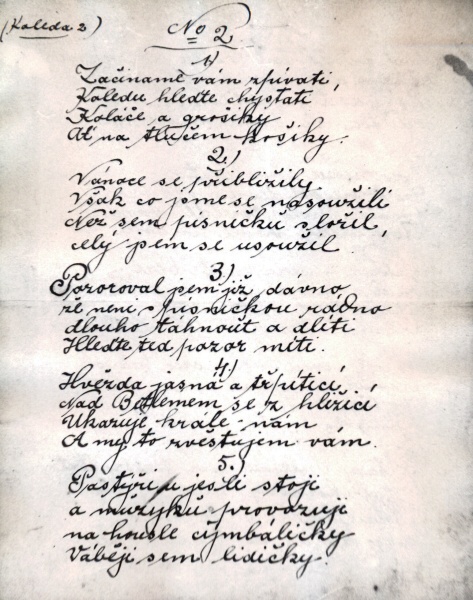 (Koleda 2)
No 2.
1)
Začínamě vám zpívati,
Koledu hleďte chystati
Koláče a grošíky
Ať na tlučem košíky.
2.)
Vánoce se přiblížily.
Však co jsme se nasoužili
Než sem písničku složil,
celý jsem se usoužil.
3.)
Pozoroval jsem již dávno
že neni s písničkou rádno
dlouho táhnout a dlíti
Hleďte teď pozor míti.
4.)
Hvězda jasná a třpítící
Nad Betlemem se z hlížící
Ukazuje krále nám
A my to zvěstujem vám.
5.)
Pastýři u jeslí stojí
a můzyku provozuji
na housle cymbáličky
Vábějí sem lidičky.